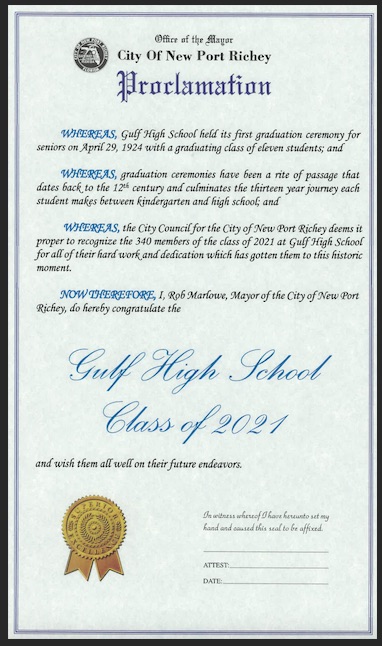 Office of the Mayor
City Of New Port Richey
Proclamation
WHEREAS, Gulf High School held its first graduation ceremony for
seniors on April 29, 1924 with a graduating class of eleven students; and
WHEREAS, graduation ceremonies have been a rite of passage that
dates back to the 12th century and culminates the thirteen year journey each
student makes between kindergarten and high school; and
WHEREAS, the City Council for the City of New Port Richey deems it
proper to recognize the 340 members of the class of 2021 at Gulf High School
for all of their hard work and dedication which has gotten them to this historic
moment.
NOW THEREFORE, I, Rob Marlowe, Mayor of the City of New Port
Richey, do hereby congratulate the
Gulf High School
Class of 2021
and wish them all well on their future endeavors.
In witness whereof I have hereunto set my
hand and caused this seal to be affixed.
ATTEST:
DATE: